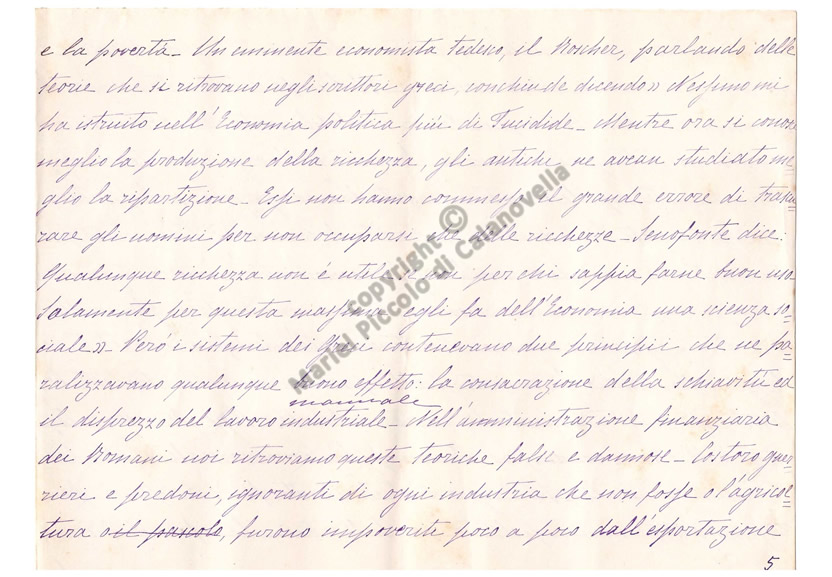 e la povertá_ Un eminente economista tedesco, il Roscher, parlando delle
teorie che si ritrovano negli scrittori greci, conchiude dicendo» Nessuno mi
ha istruito nell'Economia politica più di Tucidide_ Mentre ora si conosce
meglio la produzione della ricchezza, gli antichi ne avean studiato me=
glio la ripartizione_ Essi non hanno commesso il grande errore di trascu=
rare gli uomini per non occuparsi che delle ricchezze_ Senofonte dice:
Qualunque ricchezza non é utile se non per chi sappia farne buon uso
Solamente per questa massima egli fa dell'Economia una scienza so=
ciale»_ Però i sistemi dei Greci contenevano due principii che ne pa=
ralizzavano qualunque buono effetto: la consacrazione della schiavitù ed
manuale
il disprezzo del lavoro industriale_ Nell'amministrazione finanziaria
dei Romani noi ritroviamo queste teoriche false e dannose_ Costoro guer=
rieri e predoni, ignoranti di ogni industria che non fosse o l'agricol=
tura o il pascolo, furono impoverite poco a poco dall'esportazione
5
copyright ©
Mariel Piccolo di Calanovella